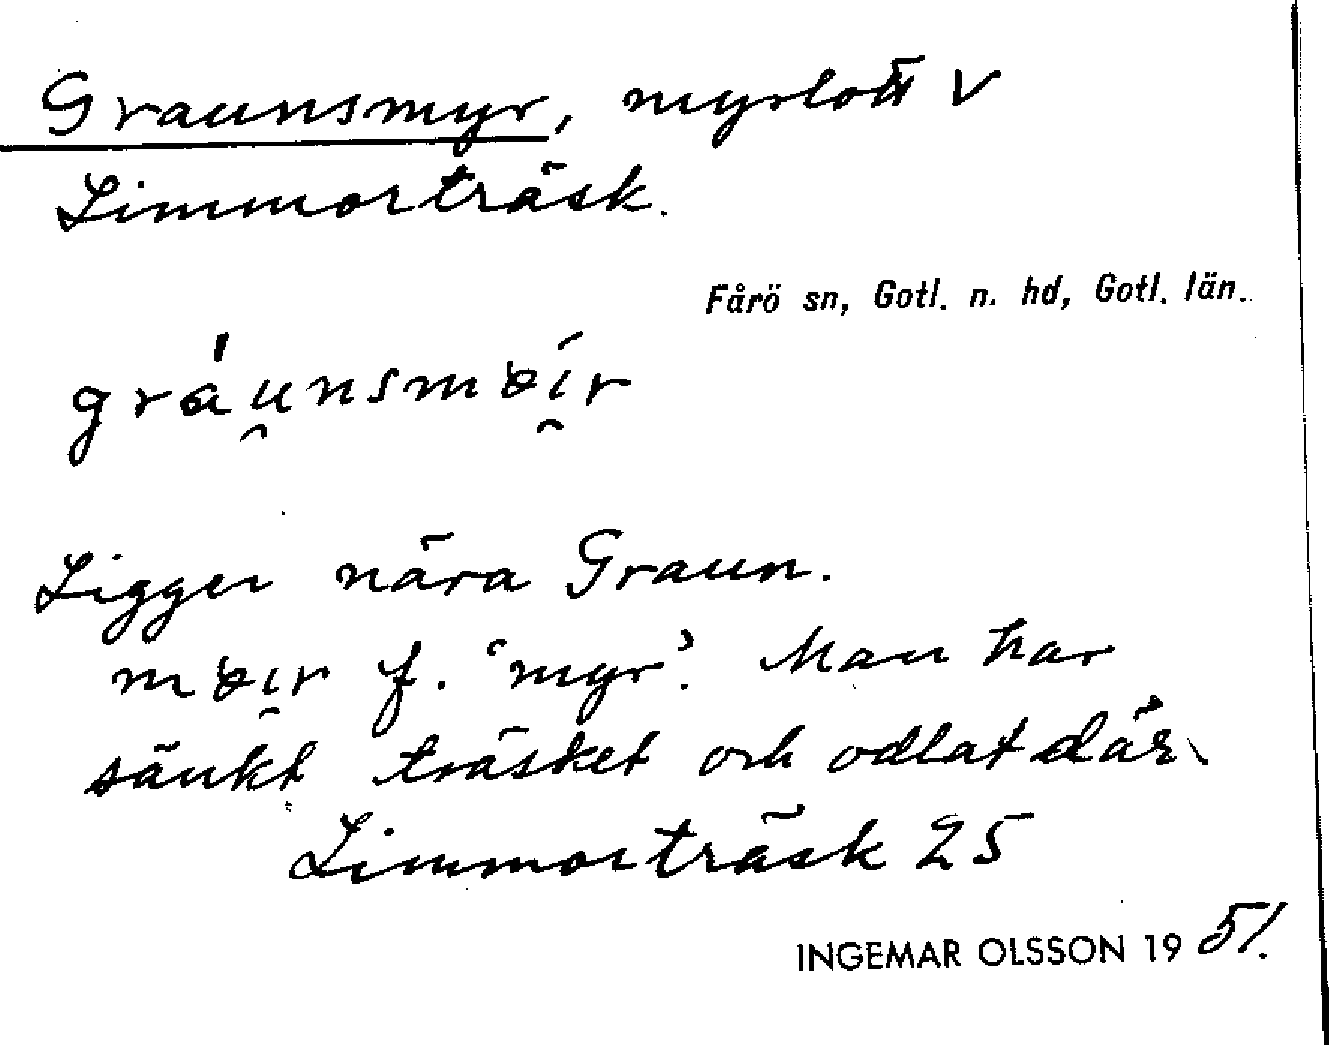 Graunsmyr, myrlott V
Limmorträsk.
Fårö sn, Gotl. n. hd, Gotl. län.
gráu̯nsmɞí̯r
Ligger nära Graun.
mɞi̯r f. ‘myr’. Man har
sänkt träsket och odlat där.
Limmorträsk 25
INGEMAR OLSSON 1951.